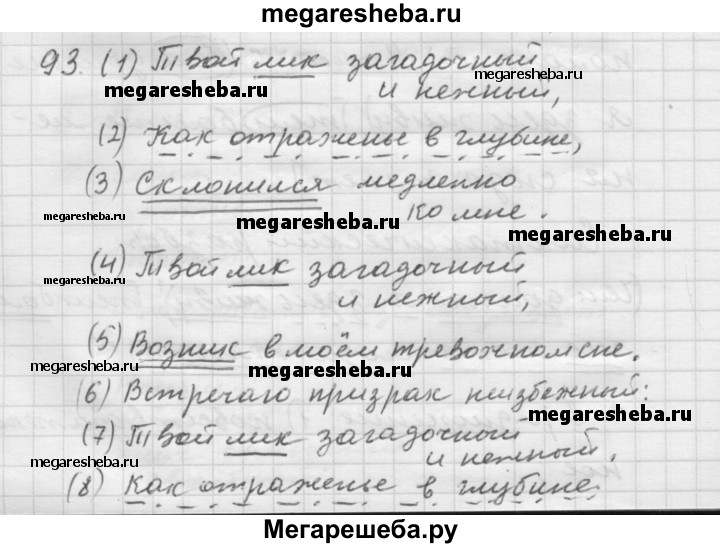 megaresheba.ru
93. (1) Твой лик загадочный
megaresheba.ru
и нежный,
megaresheba.ru
(2) Как отраженье в глубине,
(3) Склонился медленно
megaresheba.ru
ко мне.
megaresheba.ru
megaresheba.ru
(4) Твой лик загадочный
megaresheba.ru
и нежный,
(5) Возник в моём тревожном сне.
megaresheba.ru
megaresheba.ru
(6) Встречаю призрак неизбежный:
megaresheba.ru
(7) Твой лик загадочный
megaresheba.ru
и нежный.
(8) Как отраженье в глубине.
megaresheba.ru
Мегарешеба.ру